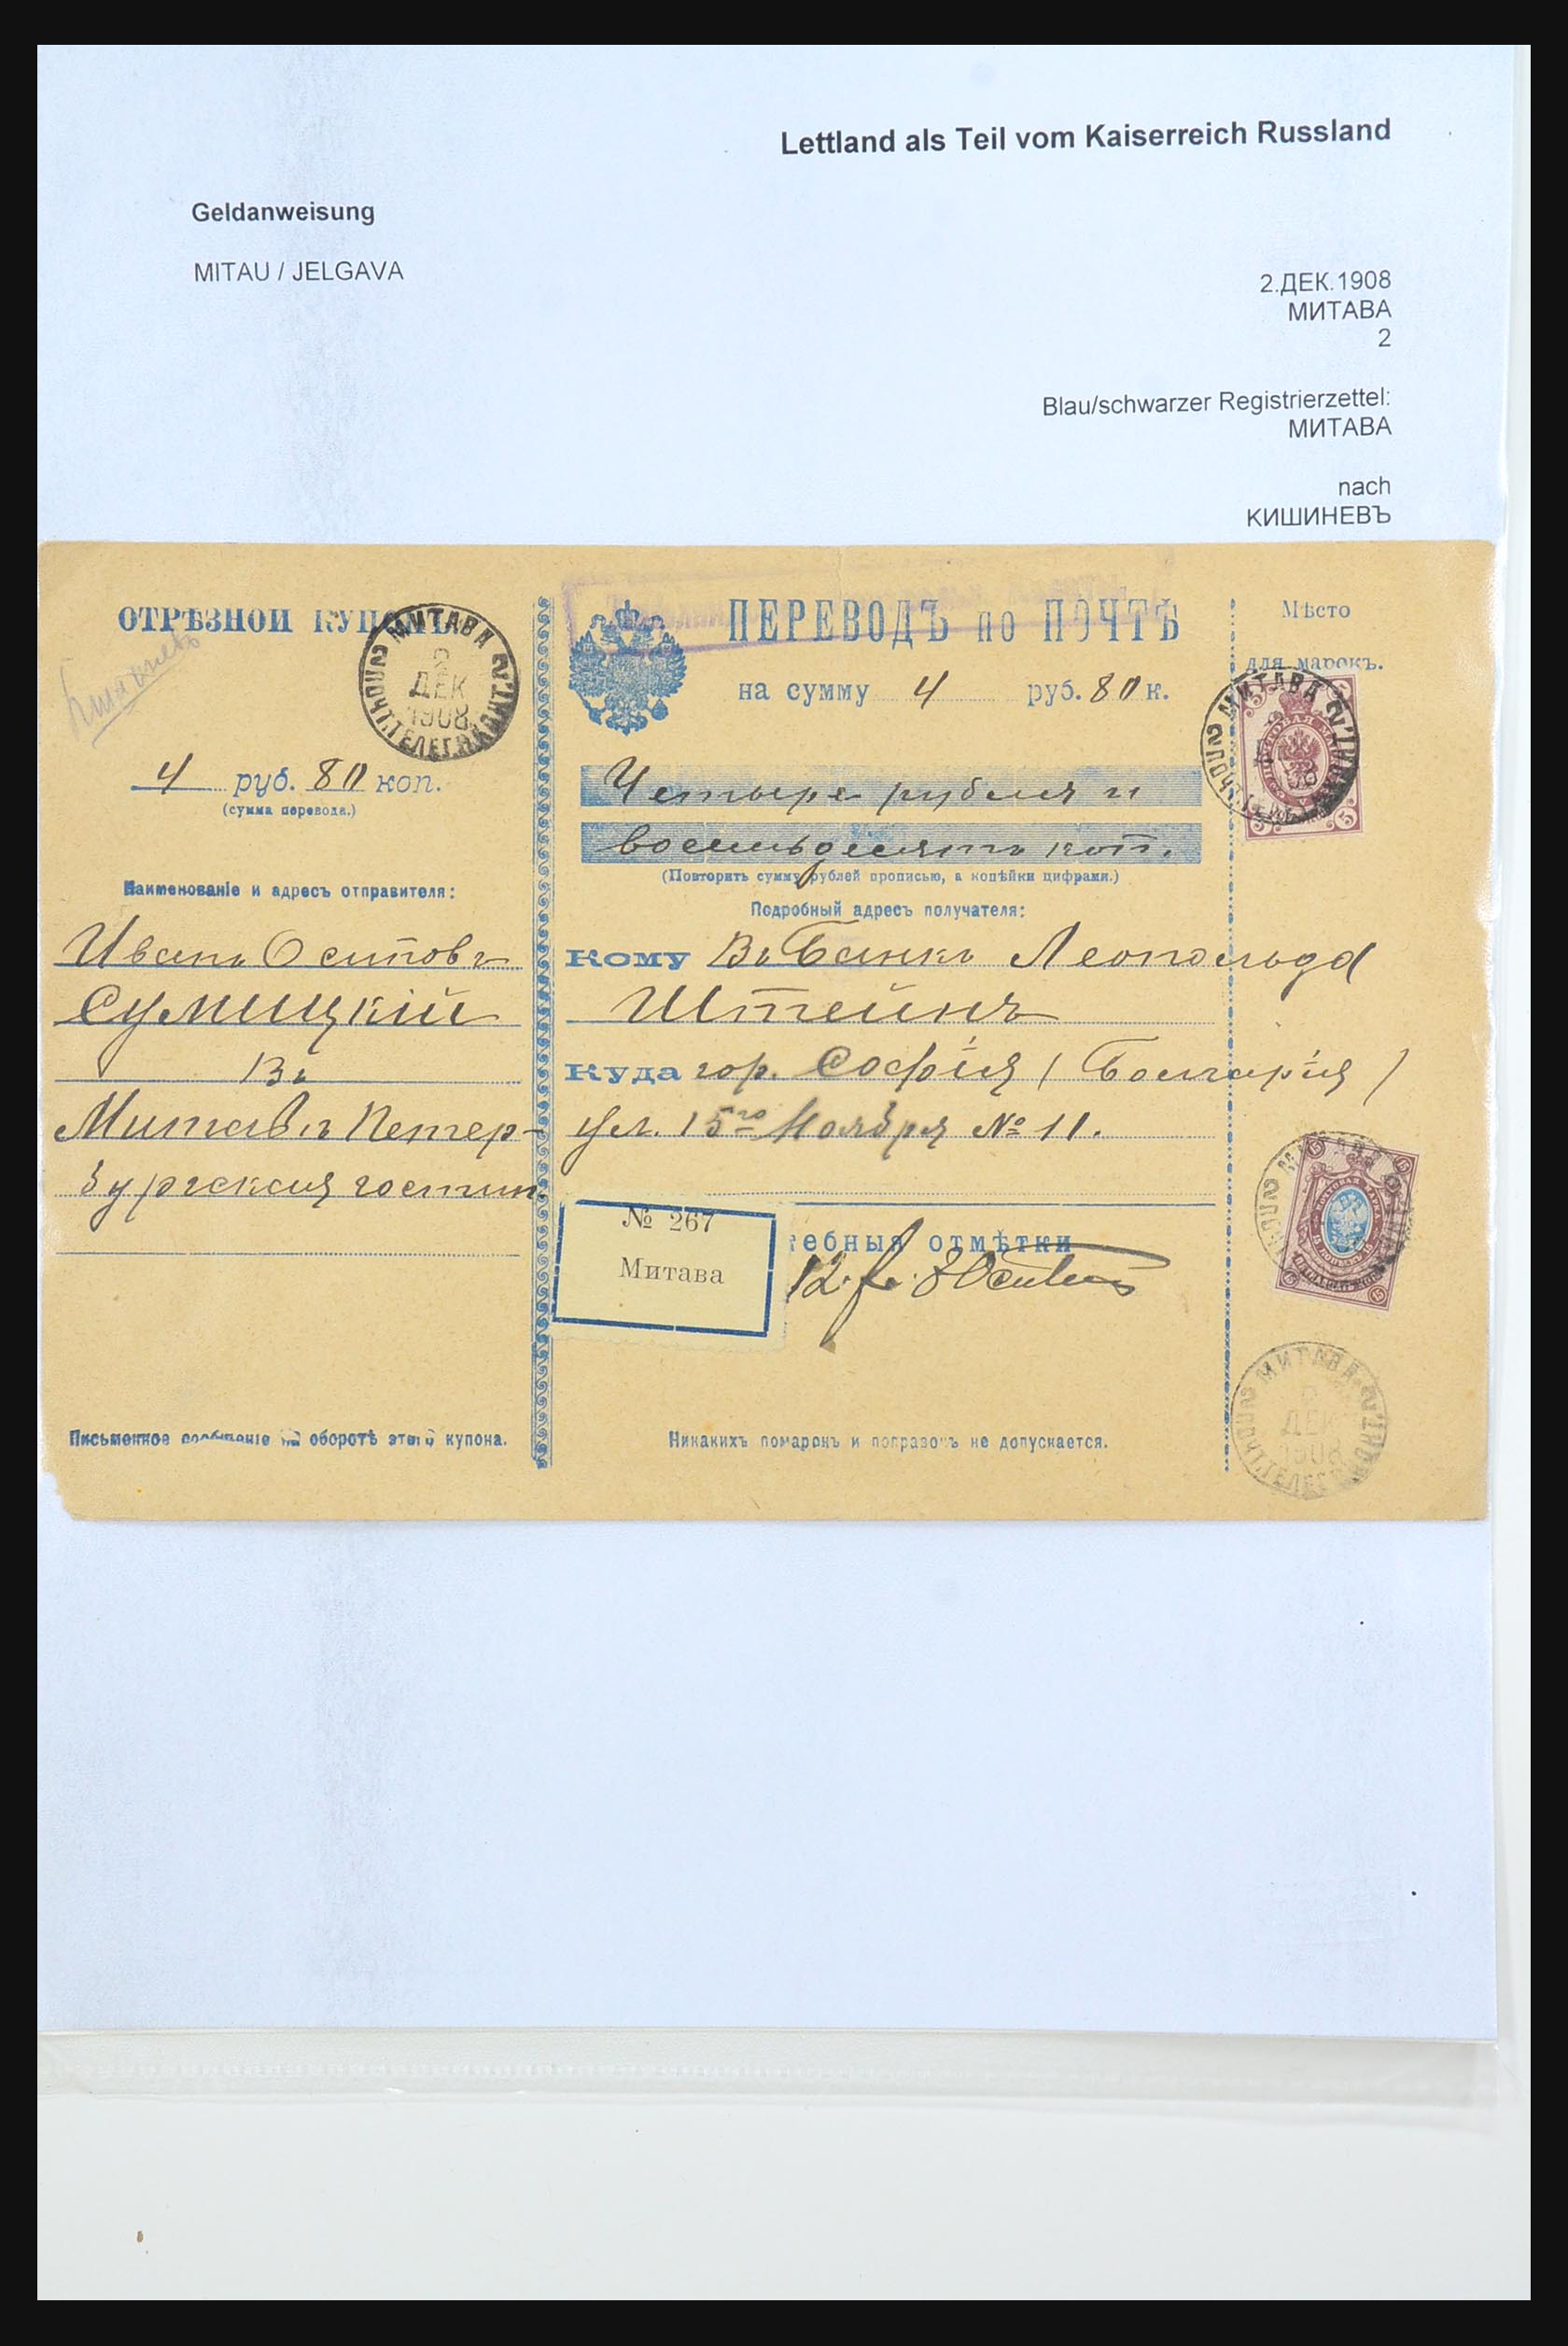 Lettland als Teil vom Kaiserreich Russland
Geldanweisung
MITAU / JELGAVA
2.ДЕК.1908
МИТАВА
2
Blau/schwarzer Registrierzettel:
МИТАВА
nach
КИШИНЕВЪ
ОТРѢЗНОЙ КУПОНЪ
Кишиневъ
МИТАВА
2
ДЕК
1908
4 руб. 80 коп.
(сумма перевода.)
Наименованіе и адресъ отправителя:
Иванъ Осиповъ
Сумицкій
Въ
Митавѣ Петер-
бургская гостин.
Письменное сообщеніе на оборотѣ этого купона.
ПЕРЕВОДЪ по ПОЧТѢ
на сумму 4 руб. 80 к.
Четыре рубля и
восемьдесятъ коп.
(Повторить сумму рублей прописью, а копѣйки цифрами.)
Подробный адресъ получателя:
Кому Въ Банкъ Леопольда
Штейнъ
Куда гор. Софія (Болгарія)
ул. 15го Ноября № 11.
№ 267
Митава
ебныя отмѣтки
Никакихъ помарокъ и поправокъ не допускается.
Мѣсто
для марокъ.
МИТАВА
5
МИТАВА
15
МИТАВА
2
ДЕК
1908